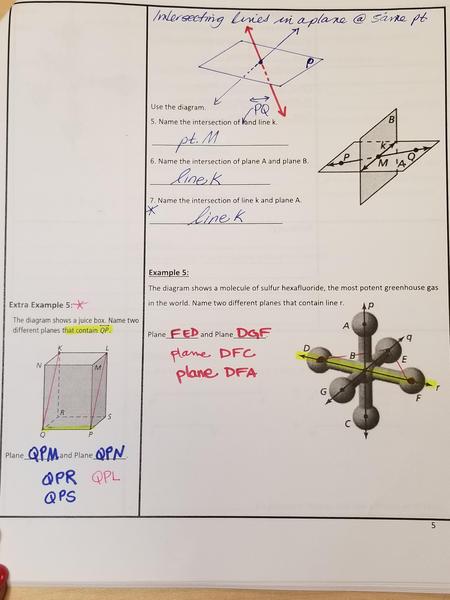 Intersecting lines in a plane @ same pt
P
Use the diagram.
PQ
5. Name the intersection of and line k.
pt. M
6. Name the intersection of plane A and plane B.
line K
* 7. Name the intersection of line k and plane A.
line K
B
k
P
M
A
Q
Example 5:
The diagram shows a molecule of sulfur hexafluoride, the most potent greenhouse gas
in the world. Name two different planes that contain line r.
Plane FED and Plane DGF
plane DFC
plane DFA
p
A
q
D
B
E
G
F
r
C
Extra Example 5: *
The diagram shows a juice box. Name two
different planes that contain QP.
K
L
N
M
R
S
Q
P
Plane QPM and Plane QPN.
QPR QPL
QPS
5